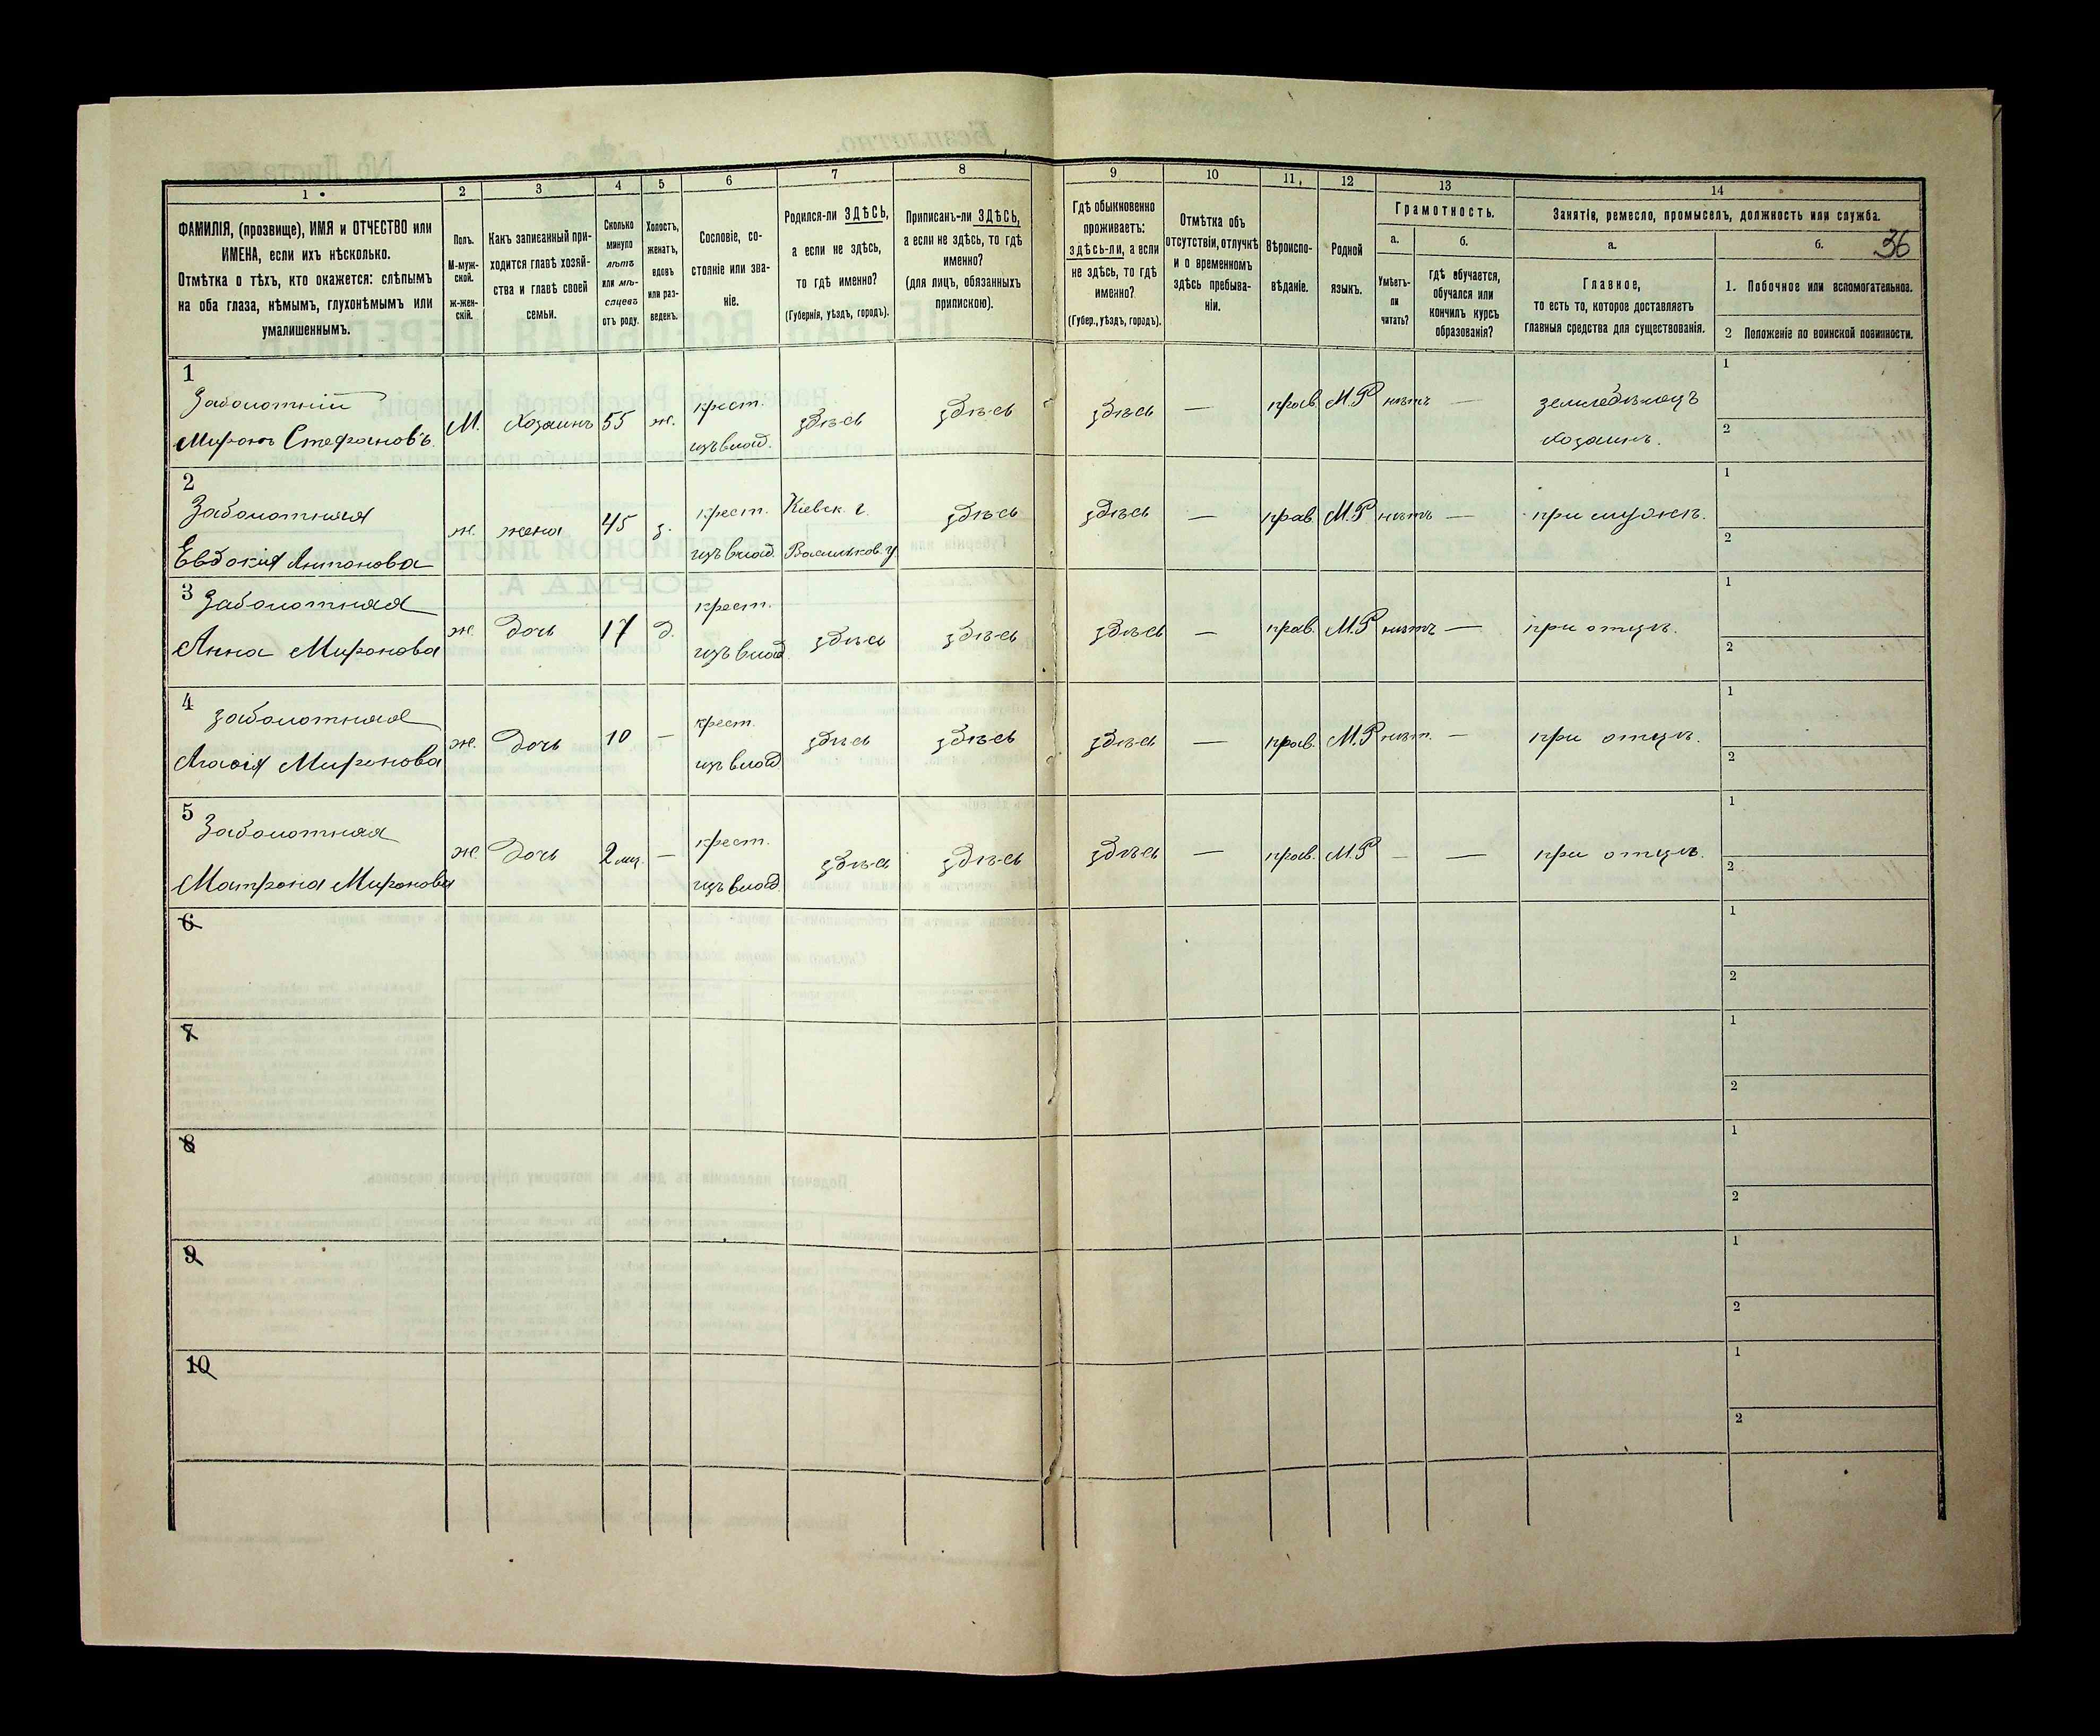 1 2 3 4 5 6 7 8 9 10 11 12 13 14
ФАМИЛІЯ, (прозвище), ИМЯ и ОТЧЕСТВО или
ИМЕНА, если ихъ нѣсколько.
Отмѣтка о тѣхъ, кто окажется: слѣпымъ
на оба глаза, нѣмымъ, глухонѣмымъ или
умалишеннымъ.
Полъ.
М-муж-
ской.
ж-жен-
скій.
Какъ записанный при-
ходится главѣ хозяй-
ства и главѣ своей
семьи.
Сколько
минуло
лѣтъ
или мѣ-
сяцевъ
отъ роду.
Холостъ,
женатъ,
вдовъ
или раз-
веденъ.
Сословіе, со-
стояніе или зва-
ніе.
Родился-ли ЗДѢСЬ,
а если не здѣсь,
то гдѣ именно?
(Губернія, уѣздъ, городъ).
Приписанъ-ли ЗДѢСЬ,
а если не здѣсь, то гдѣ
именно?
(для лицъ, обязанныхъ
припискою).
Гдѣ обыкновенно
проживаетъ:
здѣсь-ли, а если
не здѣсь, то гдѣ
именно?
(Губер., уѣздъ, городъ).
Отмѣтка объ
отсутствіи, отлучкѣ
и о временномъ
здѣсь пребыва-
ніи.
Вѣроиспо-
вѣданіе.
Родной
языкъ.
Грамотность.
а.
Умѣетъ-
ли
читать?
б.
гдѣ обучается,
обучался или
кончилъ курсъ
образованія?
Занятіе, ремесло, промыселъ, должность или служба.
а.
Главное,
то есть то, которое доставляетъ
главныя средства для существованія.
б.
36
1. Побочное или вспомогательное.
2 Положеніе по воинской повинности.
1
Заболотній
Миронъ Стефановъ
М. Хозяинъ 55 ж.
крест.
изъ влад.
здѣсь здѣсь здѣсь — прав. М.Р нѣтъ —
земледѣлецъ
хозяинъ.
1
2
2
Заболотная
Евдокія Антонова
ж. жена 45 з.
крест.
изъ влад.
Кіевск. г.
Васильков. у
здѣсь здѣсь — прав. М.Р нѣтъ — при мужѣ.
1
2
3 Заболотная
Анна Миронова
ж. дочь 17 д.
крест.
изъ влад.
здѣсь здѣсь здѣсь — прав. М.Р нѣтъ — при отцѣ.
1
2
4
Заболотная
Агафія Миронова
ж. дочь 10 —
крест.
изъ влад
здѣсь здѣсь здѣсь — прав. М.Р нѣт. — при отцѣ.
1
2
5
Заболотная
Матрона Миронова
ж. дочь 2 мц. —
крест.
изъ влад.
здѣсь здѣсь здѣсь — прав. М.Р — — при отцѣ.
1
2
6
1
2
7
1
2
8
1
2
9
1
2
10
1
2